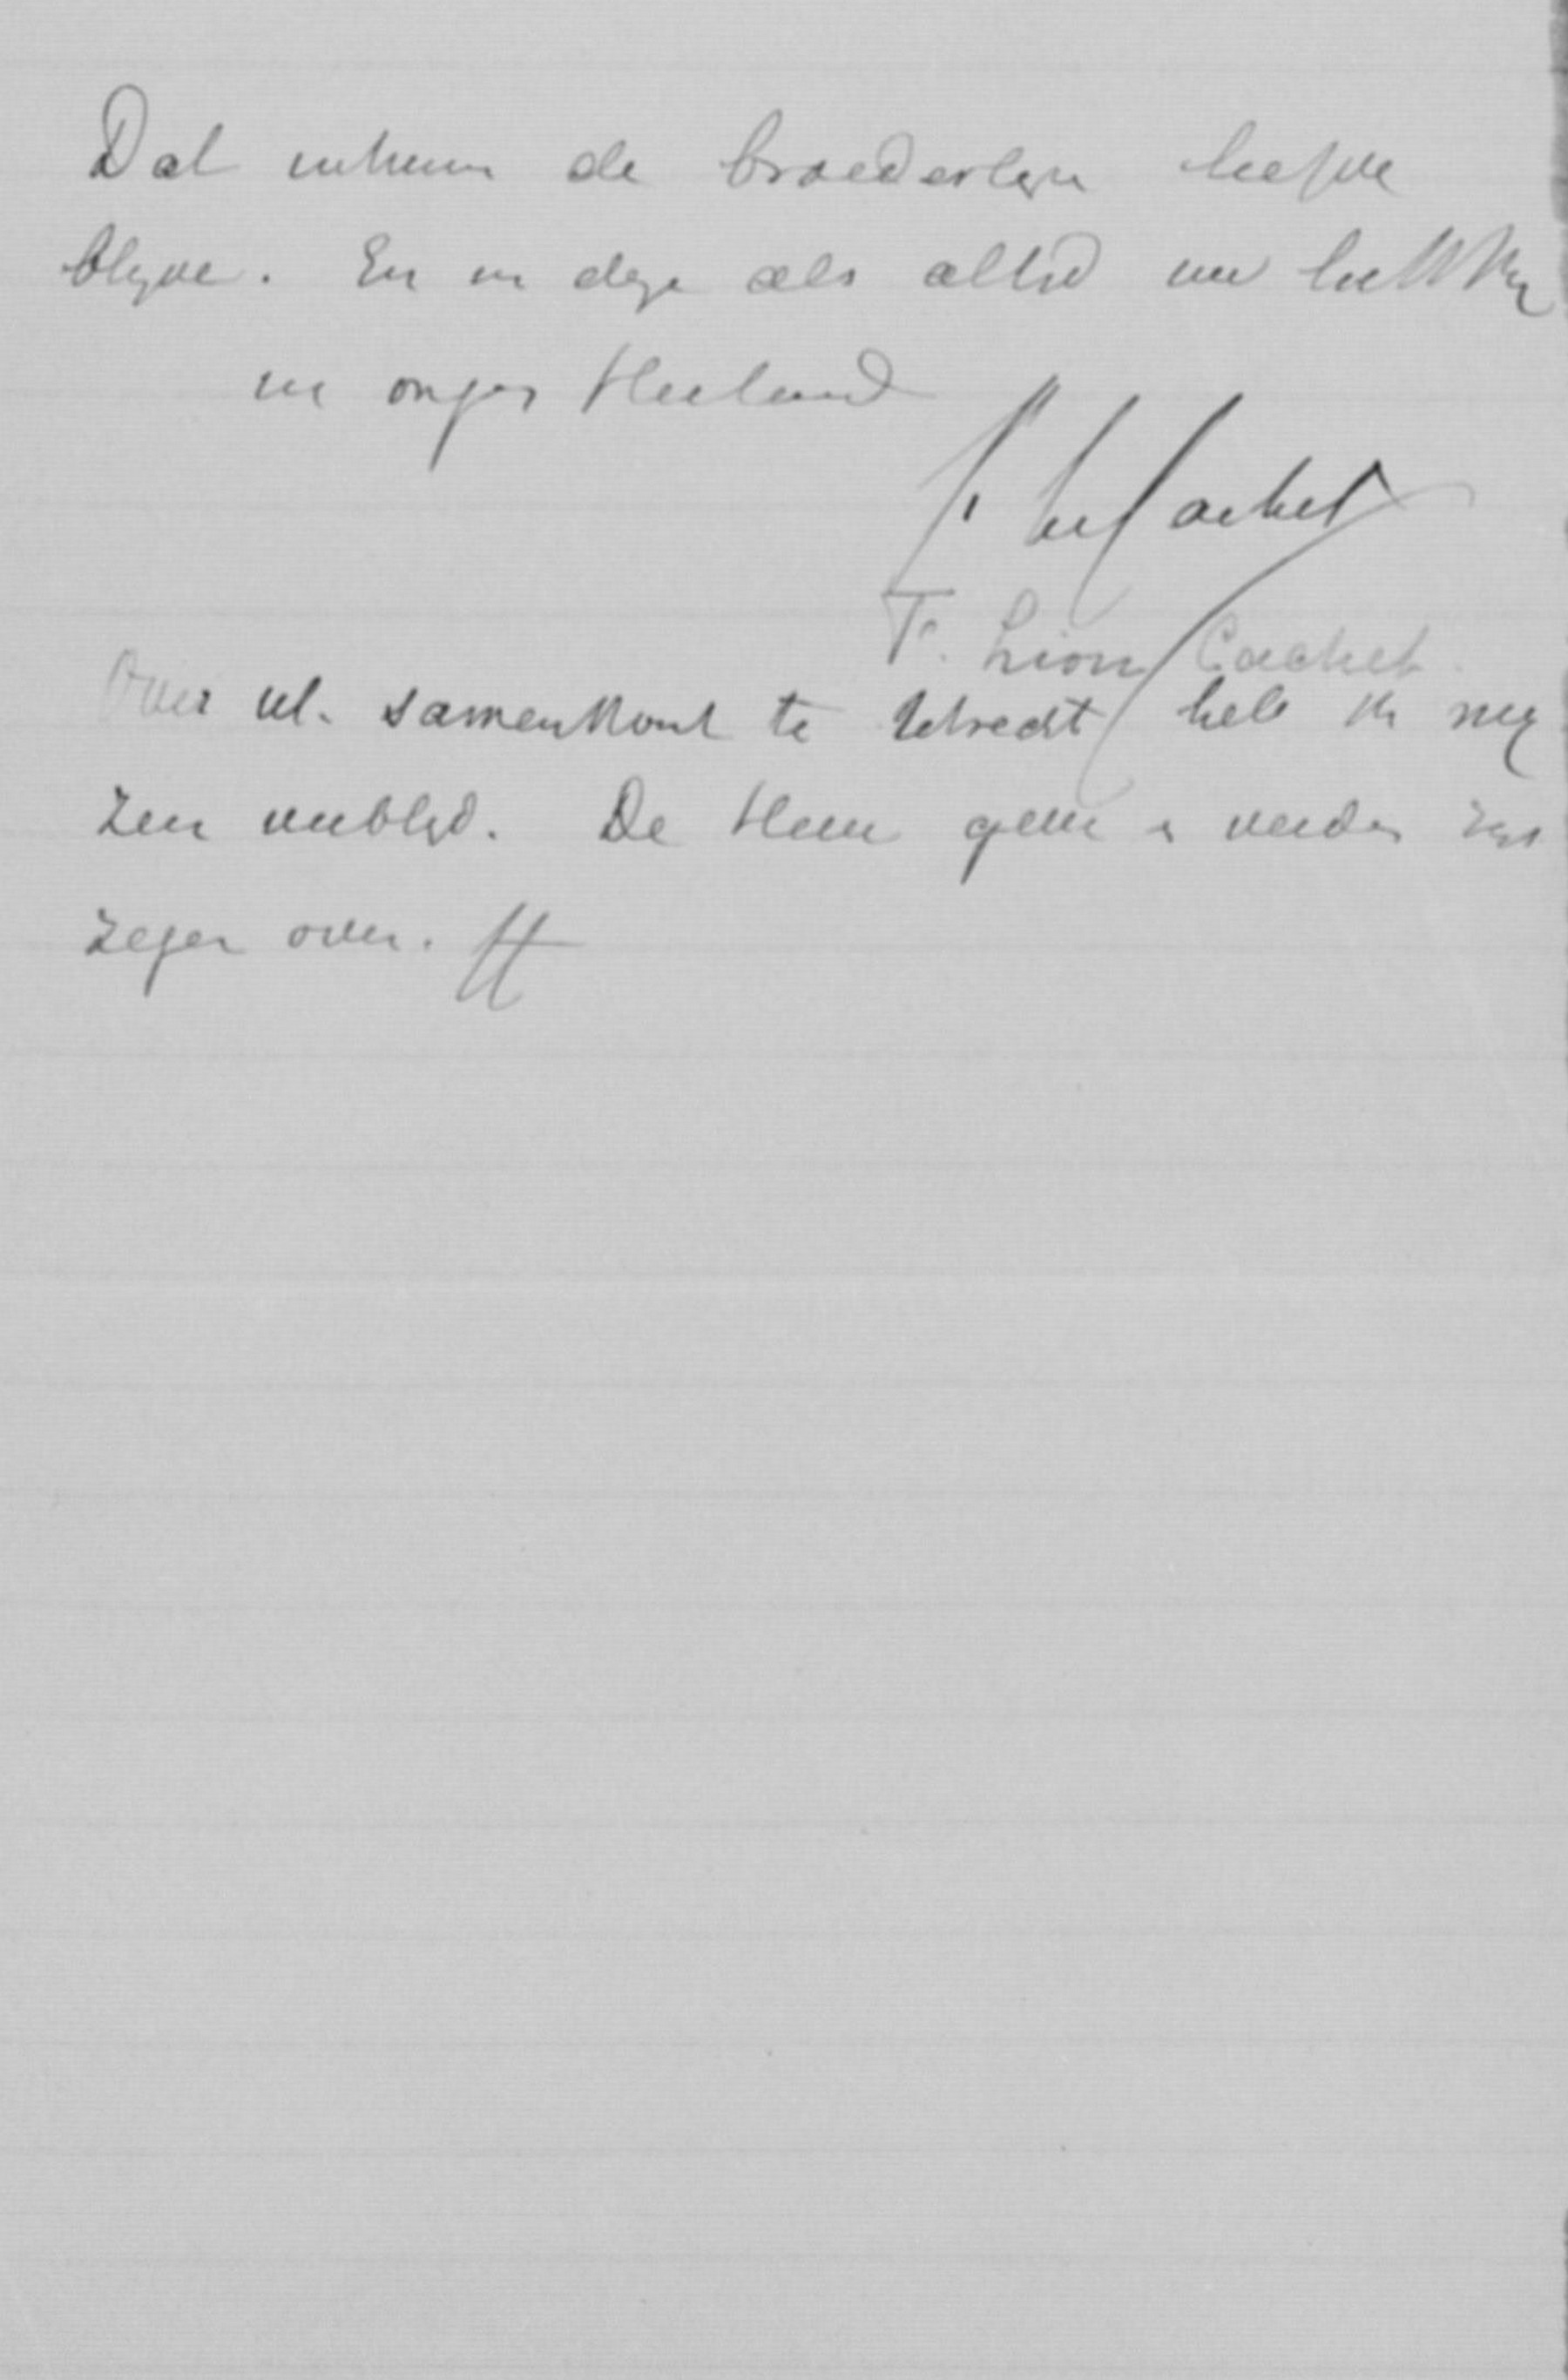 Dat intusschen de broederlijke liefde
blijve. En in deze als altijd uw liefh.
in onzen Heiland
F. Lion Cachet
F. Lion Cachet.
Over ul. samenkomst te Utrecht heb ik mij
zeer verblijd. De Heere geve er verder zijn
zegen over.